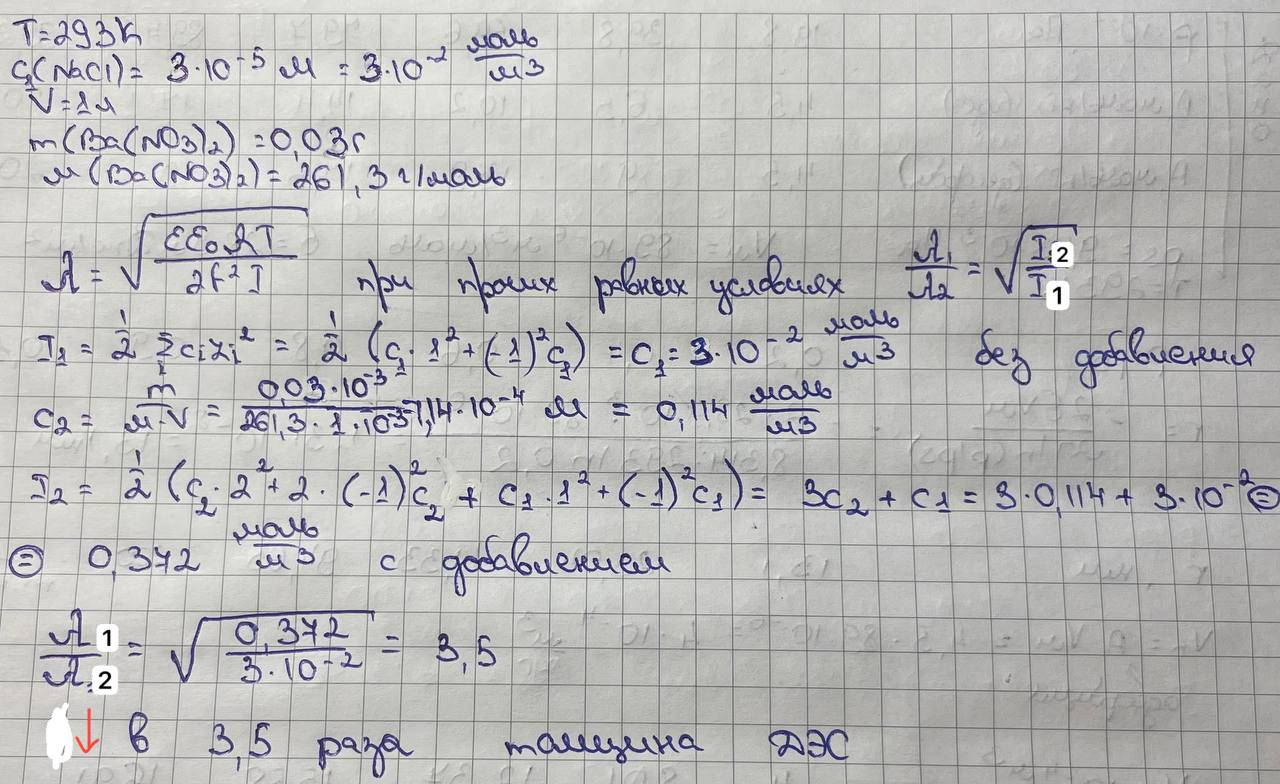 T=293K
C₁(NaCl)= 3·10⁻⁵ М = 3·10⁻² моль/м3
V=1л
m(Ba(NO3)2)=0,03г
M(Ba(NO3)2)=261,3 г/моль
λ = √(εε₀RT/2F²I) при прочих равных условиях λ₁/λ₂ = √(I₂/I₁)
I₁ = 1/2 Σcᵢzᵢ² = 1/2 (c₁·1²+(-1)²c₁) = c₁= 3·10⁻² моль/м3 без добавления
c₂ = m/M·V = 0,03·10⁻³/261,3·1·10⁻³=1,14·10⁻⁴ М = 0,114 моль/м3
I₂ = 1/2 (c₂·2²+2·(-1)²c₂ + c₁·1²+(-1)²c₁)= 3c₂ + c₁ = 3·0,114+ 3·10⁻² ⊜
⊜ 0,372 моль/м3 с добавлением
λ1/λ2 = √(0,372/3·10⁻²) = 3,5
↓ в 3,5 раза толщина ДЭС